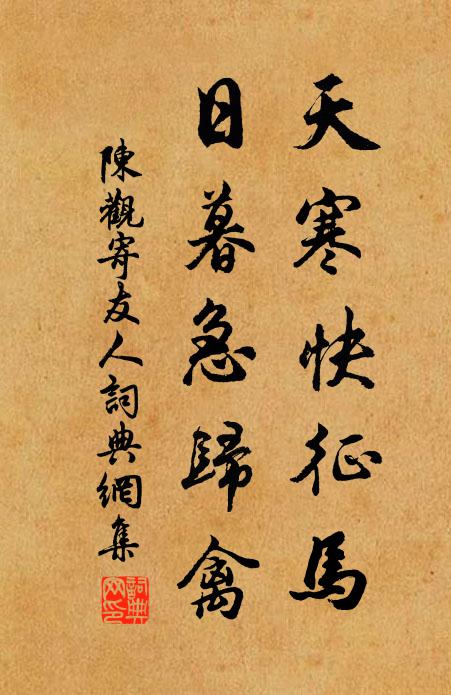 天寒快征馬
日暮急歸禽
陳觀寄友人詞典網集
詞典网印